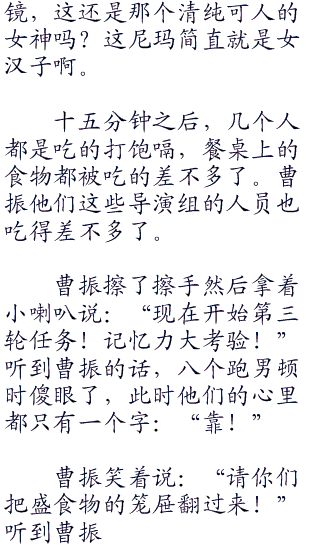 镜，这还是那个清纯可人的
女神吗？这尼玛简直就是女
汉子啊。
十五分钟之后，几个人
都是吃的打饱嗝，餐桌上的
食物都被吃的差不多了。曹
振他们这些导演组的人员也
吃得差不多了。
曹振擦了擦手然后拿着
小喇叭说：“现在开始第三
轮任务！记忆力大考验！”
听到曹振的话，八个跑男顿
时傻眼了，此时他们的心里
都只有一个字：“靠！”
曹振笑着说：“请你们
把盛食物的笼屉翻过来！”
听到曹振